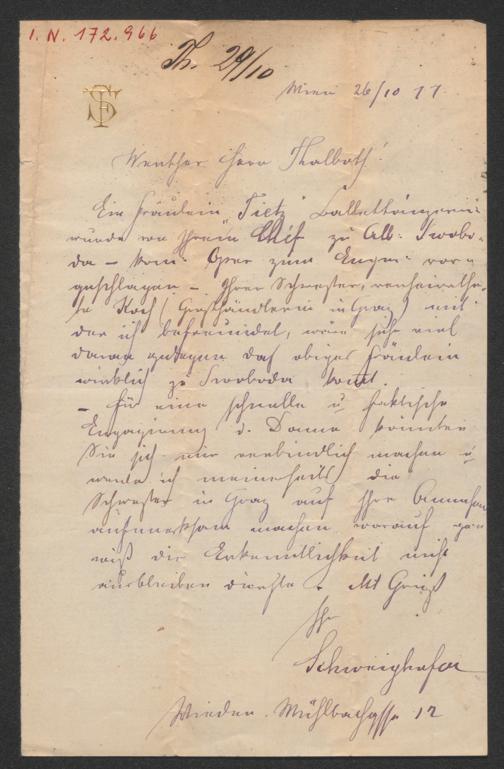 I. N. 172.966
Th. 29/10
Wien 26/10 77.
Werther Herr Thalboth!
Ein Fräulein "Tietz" Ballettänzerin
wurde von Ihrem Chef zu Alb: Swobo-
da – kom: Oper zum Engag: vor-
geschlagen – Ihrer Schwester, verheirathe-
te Koch (Grashändlerin in Graz) mit
der ich befreundet, wäre sehr viel
daran gelegen daß obiges Fräulein
wirklich zu Swoboda komt.
– Für eine schnelle u faktische
Engagirung d. Dame könnten
Sie sich mir verbindlich machen u
werde ich meinerseits die
Schwester in Graz auf Ihre
aufmerksam machen, worauf ge-
wiß die Erkentlichkeit nicht
ausbleiben dürfte. Mit Gruß
Ihr
Schweighofer
Wieden. Mühlbachgasse 12